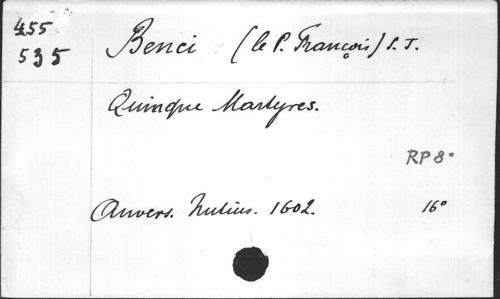 455
535
Benci (le P. François) S. J.
Quinque Martyres.
RP 8°
Anvers. Nutius. 1602. 16°